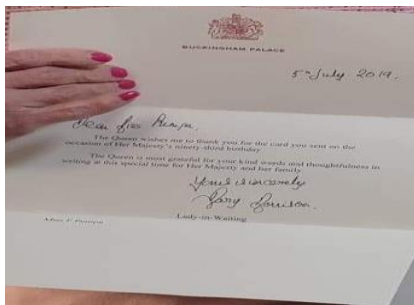 BUCKINGHAM PALACE
5th July, 2019.
Dear Miss
The Queen wishes me to thank you for the card you sent on the
occasion of Her Majesty's ninety-third birthday.
The Queen is most grateful for your kind words and thoughtfulness in
writing at this special time for Her Majesty and her family.
Yours sincerely
Lady-in-Waiting